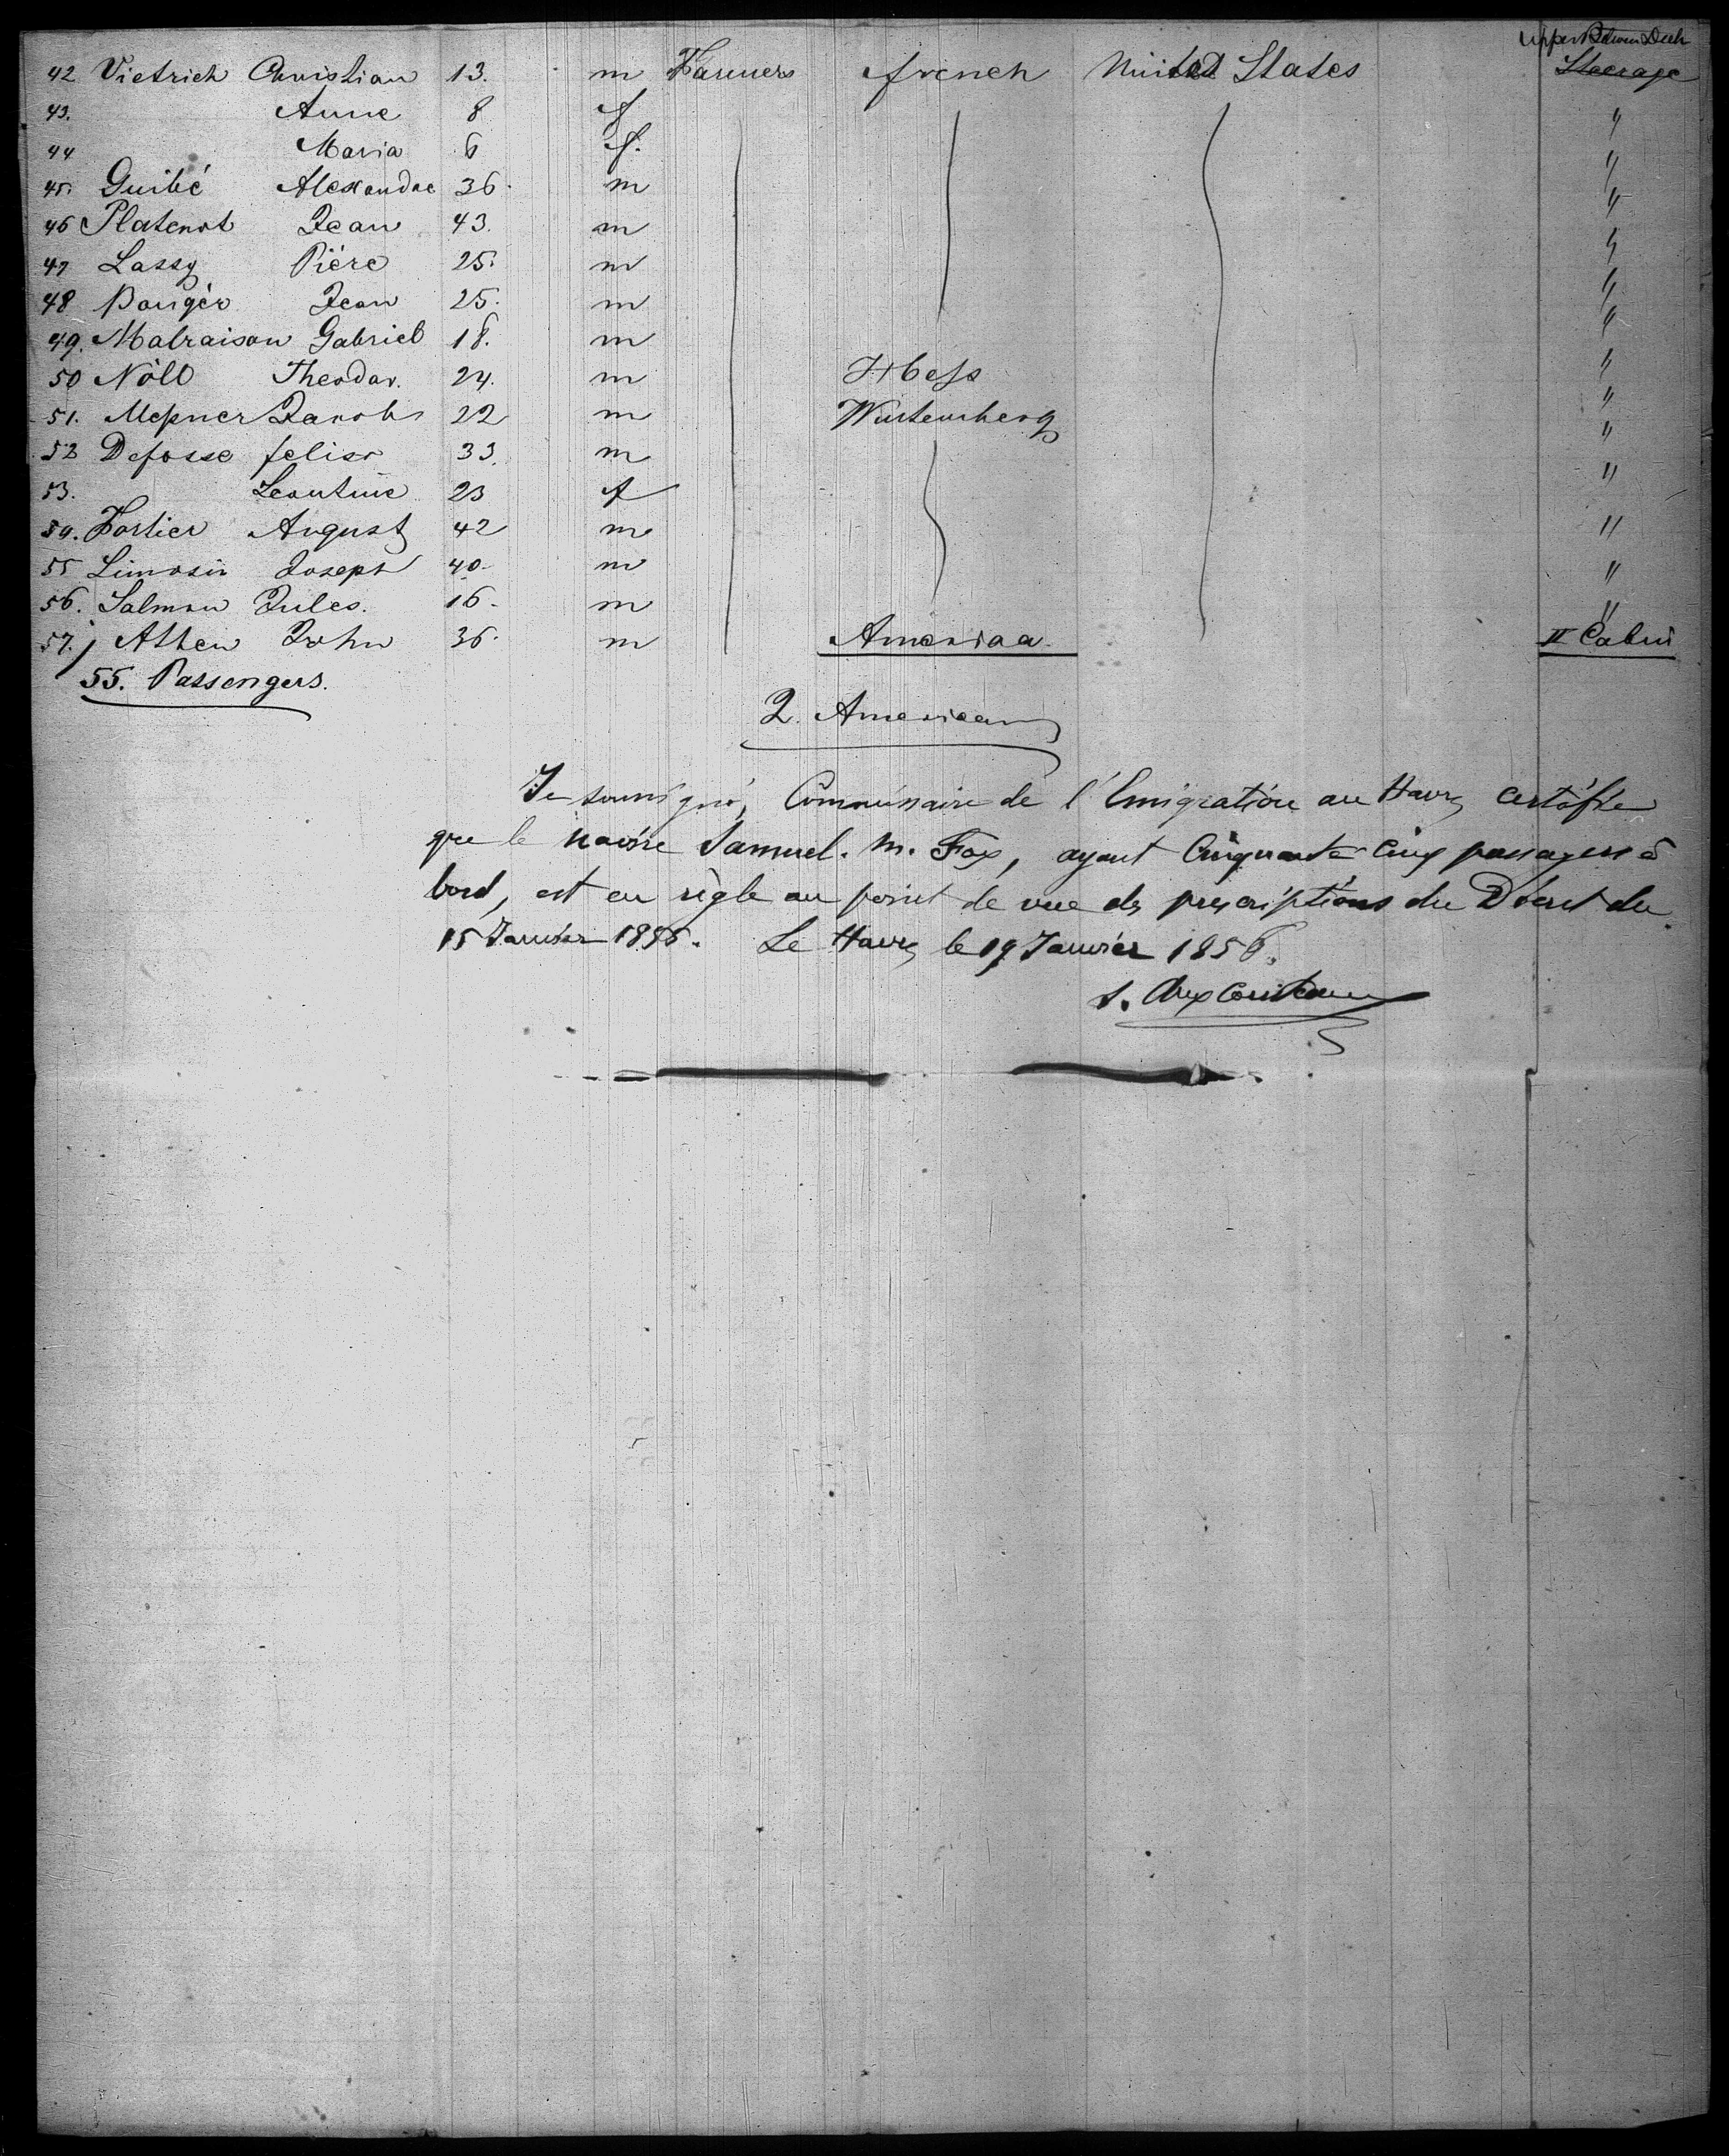 Upper Between Deck
42 Dietrich Christian 13. m Farmers french United States Steerage
43. Anne 8 f "
44 Maria 6 f. "
45. Guibé Alexandre 36. m "
46 Platenot Jean 43. m "
47 Lassy Piére 25. m "
48 Bougér Jean 25. m "
49. Malraison Gabriel 18. m "
50 Nöll Theodor. 24. m Hess "
51. Messner Jakob 22 m Wurtemberg "
52 Defosse felise 33. m "
53. Leontine 23 f "
54. Hortier August 42 m "
55 Limosin Joseph 40. m "
56. Salmon Jules. 16. m "
57. Athen John 36. m America II Cabin
55. Passengers.
2. American
Je soussigné, Commissaire de l'Emigration au Havre, certifie
que le navire Samuel. M. Fox, ayant Cinquante Cinq passagers à
bord, est en règle au point de vue des prescriptions du Décret du
15 Janvier 1855. Le Havre, le 19 Janvier 1856.